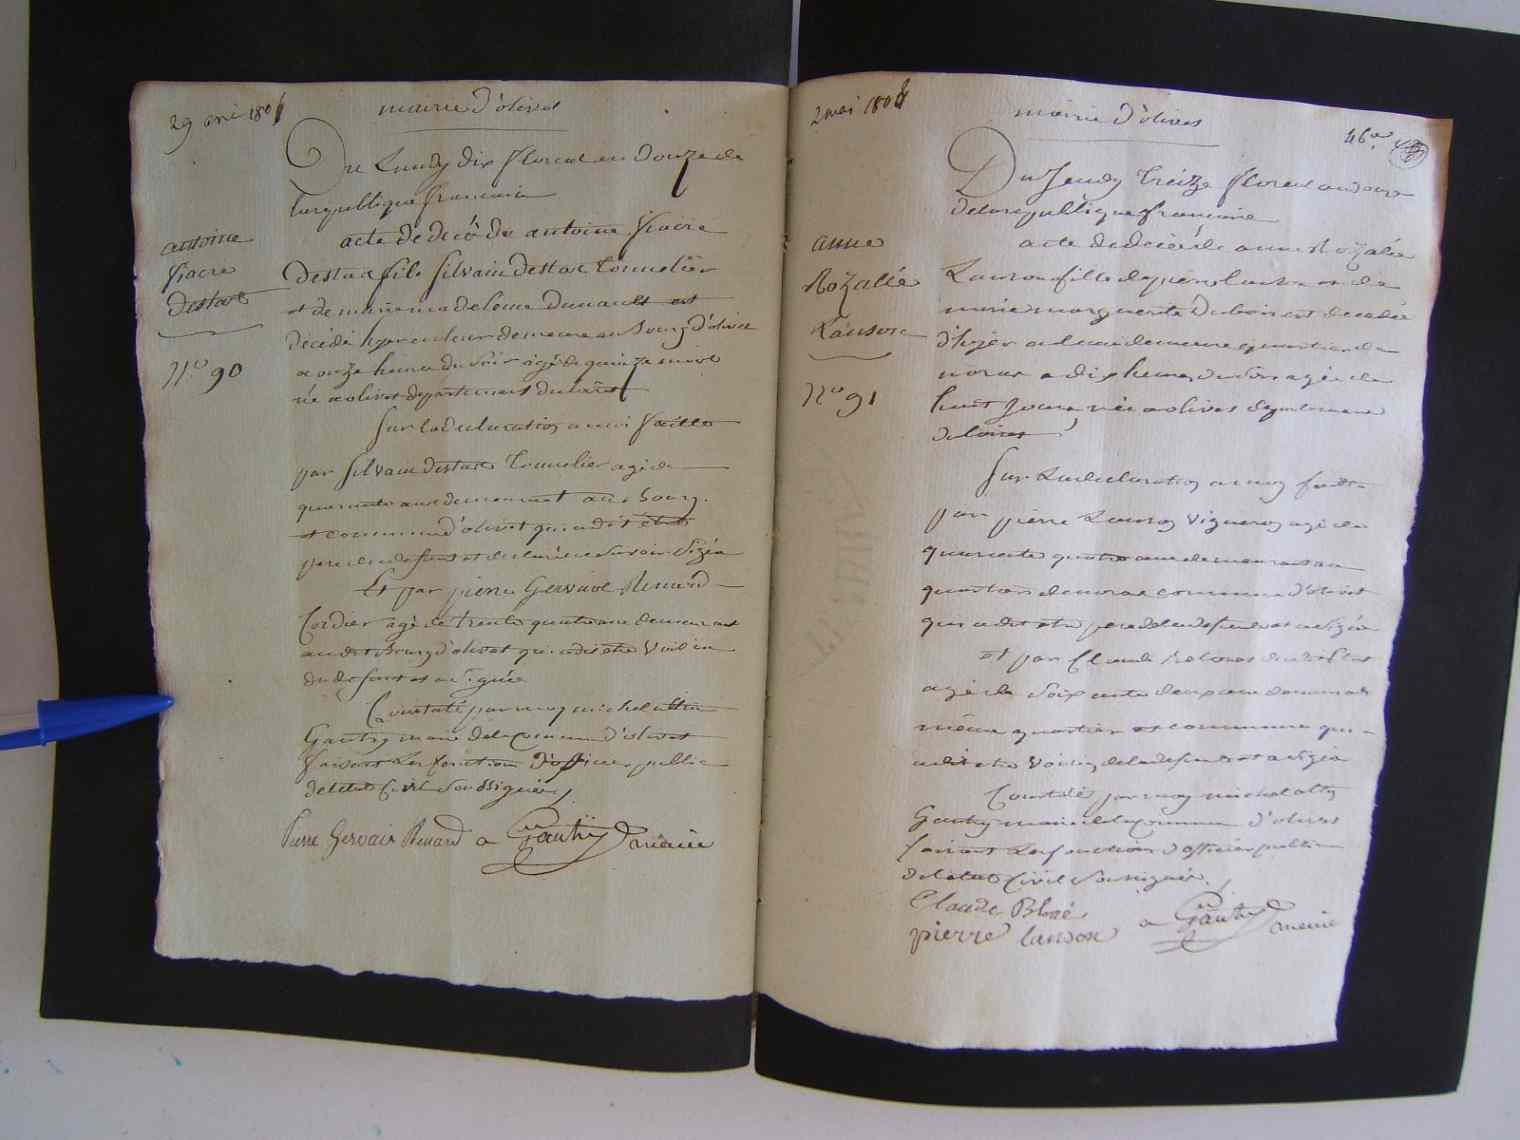 29 avri 1804
mairie d'olivet
Du Lundy dix floreal an Douze de
la republique francaise
antoine
fiacre
destas
N.o 90
acte de décé de antoine fiacre
destas fils silvain destas tonnelier
et de marie
décédé hyer en leur demeure au bourg d'olivet
a onze heure du soir agé de quinze mois
né a olivet departement du loiret
Sur la declaration a moi faitte
par silvain destas tonnelier agé de
quarante ans demeurant au bourg
et commune d'olivet qui a dit etre
pere du defunt et declaré ne savoir signer
Et par pierre Gervais Renard
Cordier agé de trente quatre ans demeurant
au dit bourg d'olivet qui a dit etre voisin
du defunt et a signé
Constaté par moy michel
Gautry maire de la Commune d'olivet
faisant les fonction d'officier public
de l'etat Civil soussigné
Pierre Gervais Renard a Gautry maire
2 mai 1804
mairie d'olivet
46e
Du Jeudy treize floreal an douze
de la republique francaise
anne
Rozallé
Lanson
N.o 91
acte de décé de anne Rozalé
Lanson fille de pierre Lanson et de
marie marguerite Dubois est décédé
d'hyer a leur demeure quartier de
a dix heures du soir agé de
huit jours née a olivet departement
du loiret
Sur la declaration a moy faitte
par pierre Lanson vigneron agé de
quarante quatre ans demeurant au
quartier de commune d'olivet
qui a dit etre pere de la defunte et a signé
et par Claude
agé de soixante deux ans demeurant
même quartier et commune qui
a dit etre voisin de la defunte et a signé
Constaté par moy michel
Gautry maire de la Commune d'olivet
faisant les fonction d'officier public
de l'etat Civil soussigné
Claude
pierre lanson a Gautry maire